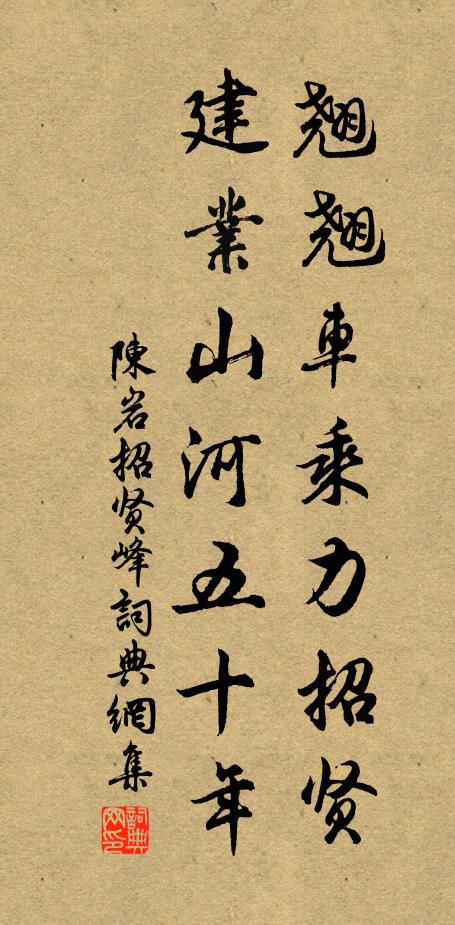 翘翘車乘力招贤
建業山河五十年
陳岩招贤峰詞典網集
詞典网印